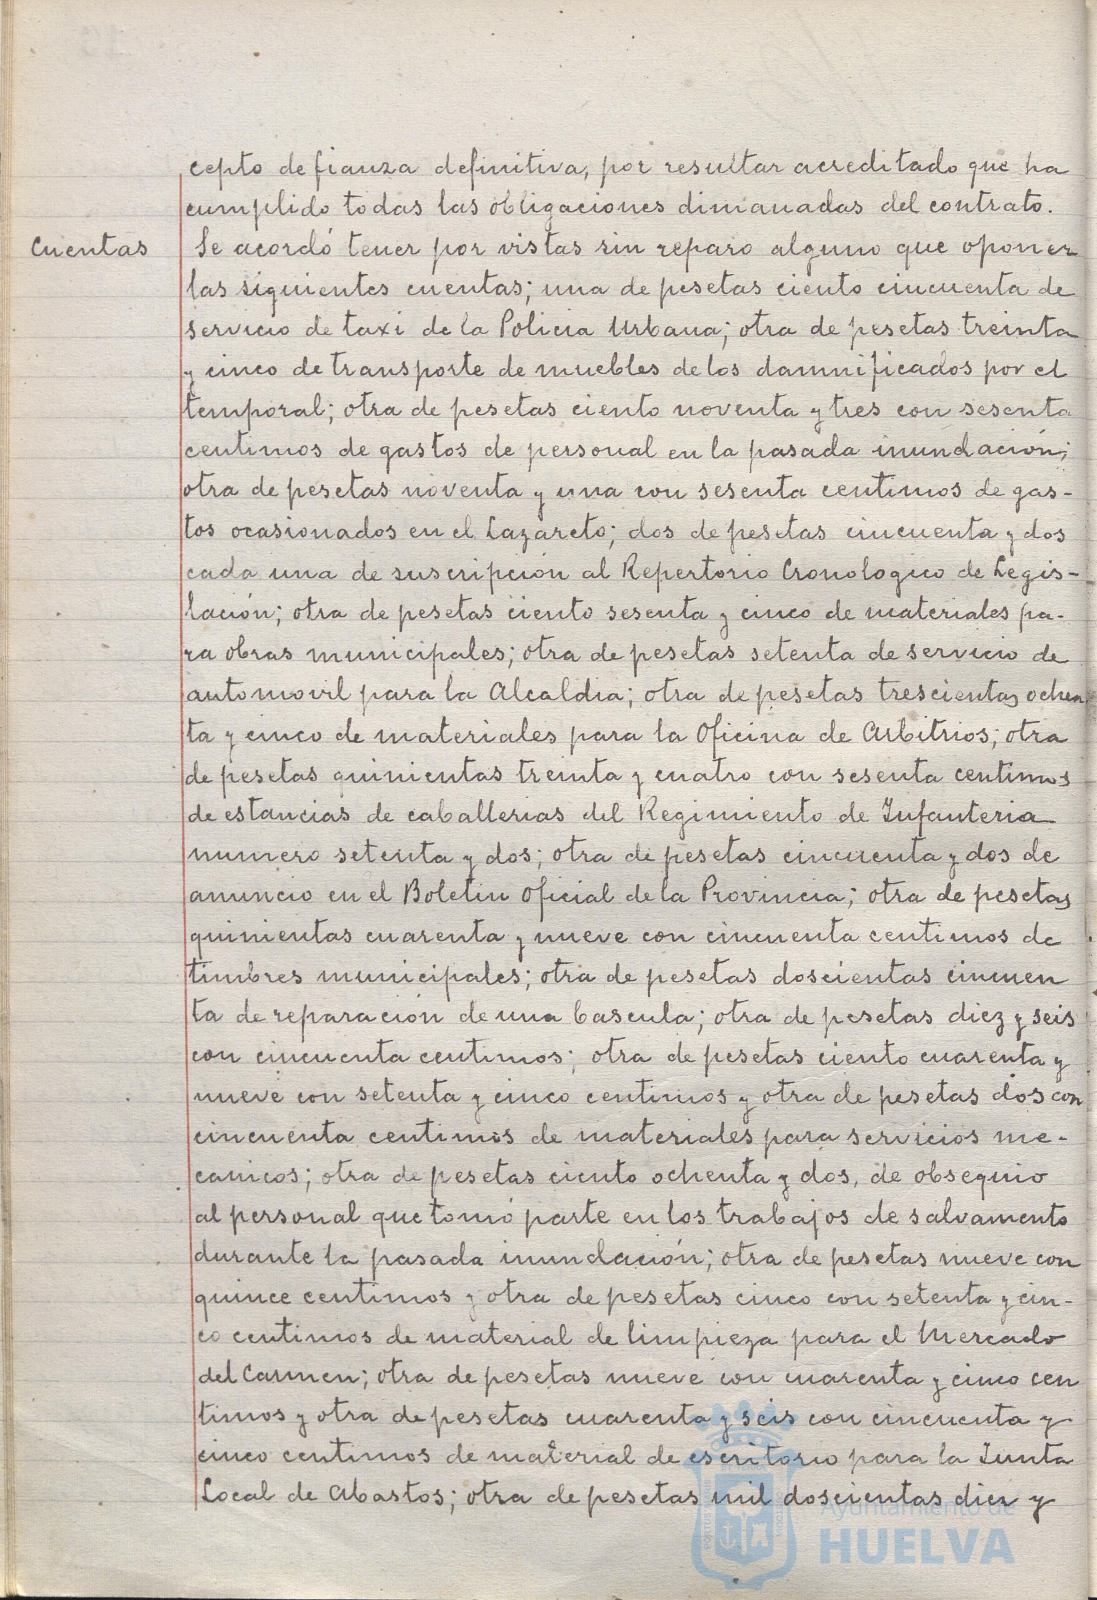 cepto de fianza definitiva, por resultar acreditado que ha
cumplido todas las obligaciones dimanadas del contrato.
Cuentas
Se acordó tener por vistas sin reparo alguno que oponer
las siguientes cuentas; una de pesetas ciento cincuenta de
servicio de taxi de la Policia Urbana; otra de pesetas treinta
y cinco de transporte de muebles de los damnificados por el
temporal; otra de pesetas ciento noventa y tres con sesenta
centimos de gastos de personal en la pasada inundación;
otra de pesetas noventa y una con sesenta centimos de gas-
tos ocasionados en el Lazareto; dos de pesetas cincuenta y dos
cada una de suscripción al Repertorio Cronologico de Legis-
lación; otra de pesetas ciento sesenta y cinco de materiales pa-
ra obras municipales; otra de pesetas setenta de servicio de
automovil para la Alcaldia; otra de pesetas trescientas ochen
ta y cinco de materiales para la Oficina de Arbitrios; otra
de pesetas quinientas treinta y cuatro con sesenta centimos
de estancias de caballerias del Regimiento de Infanteria
numero setenta y dos; otra de pesetas cincuenta y dos de
anuncio en el Boletin Oficial de la Provincia; otra de pesetas
quinientas cuarenta y nueve con cincuenta centimos de
timbres municipales; otra de pesetas doscientas cincuen
ta de reparación de una bascula; otra de pesetas diez y seis
con cincuenta centimos; otra de pesetas ciento cuarenta y
nueve con setenta y cinco centimos y otra de pesetas dos con
cincuenta centimos de materiales para servicios me-
canicos; otra de pesetas ciento ochenta y dos, de obsequio
al personal que tomó parte en los trabajos de salvamento
durante la pasada inundación; otra de pesetas nueve con
quince centimos y otra de pesetas cinco con setenta y cin-
co centimos de material de limpieza para el Mercado
del Carmen; otra de pesetas nueve con cuarenta y cinco cen
timos y otra de pesetas cuarenta y seis con cincuenta y
cinco centimos de material de escritorio para la Junta
Local de Abastos; otra de pesetas mil doscientas diez y
Ayuntamiento de
HUELVA